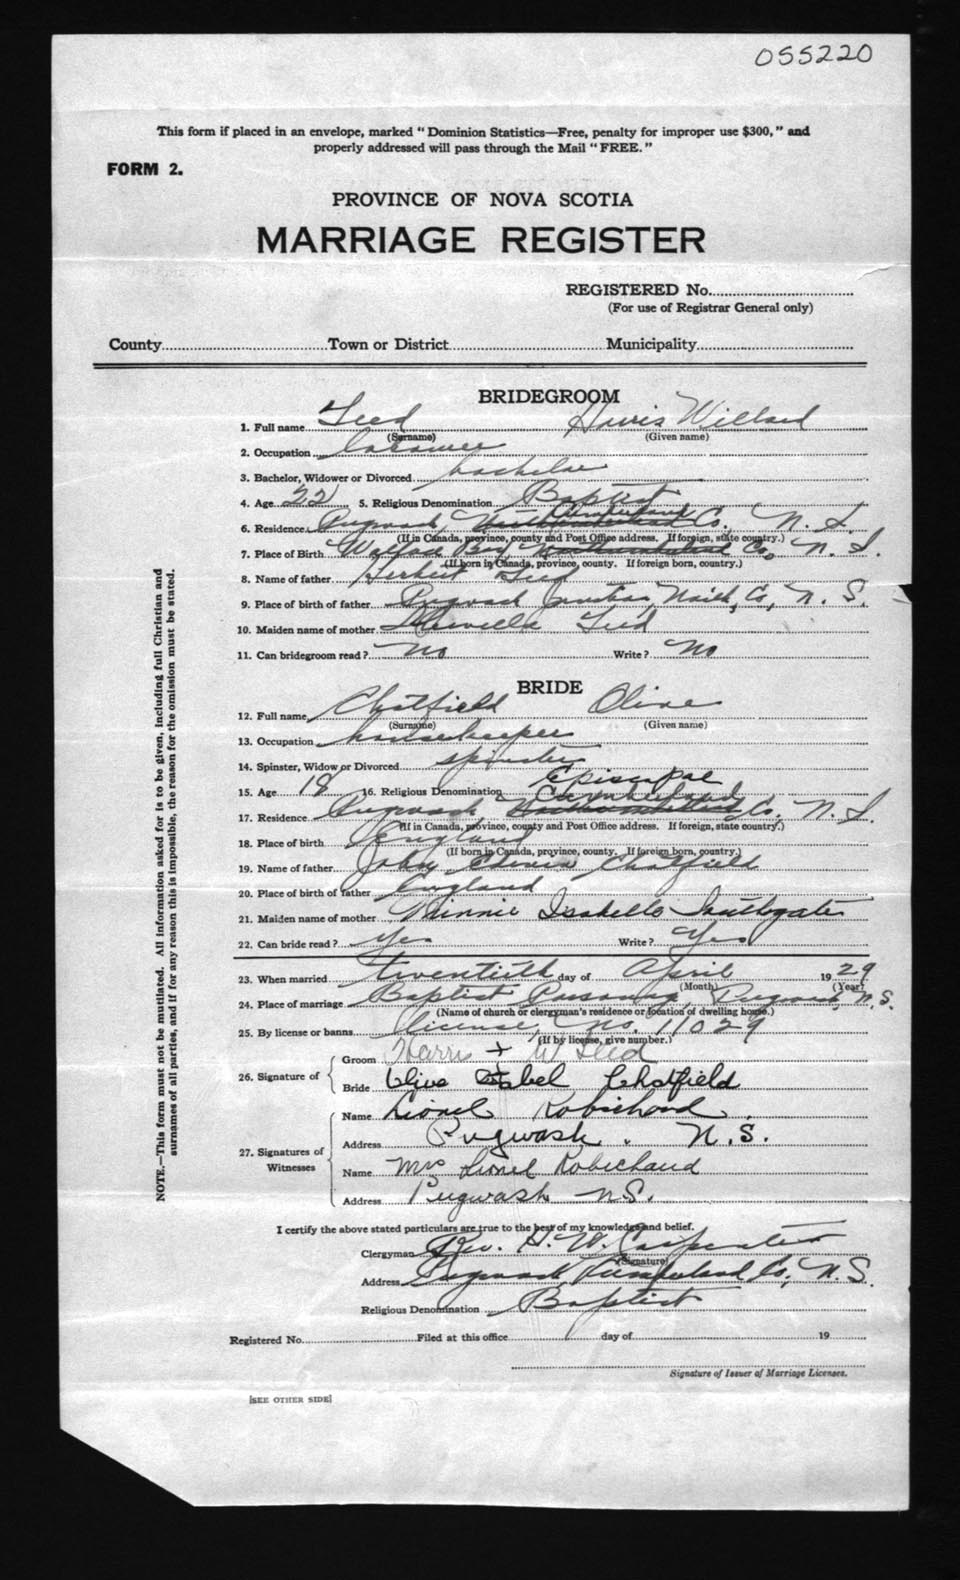 055220
This form if placed in an envelope, marked "Dominion Statistics—Free, penalty for improper use $300," and
properly addressed will pass through the Mail "FREE."
FORM 2.
PROVINCE OF NOVA SCOTIA
MARRIAGE REGISTER
REGISTERED No.
(For use of Registrar General only)
County Town or District Municipality
BRIDEGROOM
1. Full name Teed Harris Willard
(Surname) (Given name)
2. Occupation
3. Bachelor, Widower or Divorced bachelor
4. Age 22 5. Religious Denomination Baptist
Cumberland
6. Residence Pugwash, Northumberland Co., N. S.
(If in Canada, province, county and Post Office address. If foreign, state country.)
7. Place of Birth Wallace Bay Northumberland Co., N. S.
(If born in Canada, province, county. If foreign born, country.)
8. Name of father Herbert Teed
9. Place of birth of father Pugwash Co., N. S.
10. Maiden name of mother Teed
11. Can bridegroom read? No Write? No
BRIDE
12. Full name Chatfield Olive
(Surname) (Given name)
13. Occupation housekeeper
14. Spinster, Widow or Divorced spinster
15. Age 18 16. Religious Denomination Episcopal
Cumberland
17. Residence Pugwash Northumberland Co., N. S.
(If in Canada, province, county and Post Office address. If foreign, state country.)
18. Place of birth England
(If born in Canada, province, county. If foreign born, country.)
19. Name of father John Edwin Chatfield
20. Place of birth of father England
21. Maiden name of mother Minnie Isabella Southgate
22. Can bride read? Yes Write? Yes
23. When married twentieth day of April 1929
(Month) (Year)
24. Place of marriage Baptist Parsonage, Pugwash, N. S.
(Name of church or clergyman's residence or location of dwelling house.)
25. By license or banns license, No. 11029
(If by license, give number.)
26. Signature of
Groom Harris + W Teed
Bride Olive Chatfield
27. Signatures of Witnesses
Name Lionel Robichaud
Address Pugwash. N.S.
Name Mrs Lionel Robichaud
Address Pugwash N.S.
I certify the above stated particulars are true to the best of my knowledge and belief.
Clergyman Rev. H. W. Carpenter
(Signature)
Address Pugwash Cumberland Co., N. S.
Religious Denomination Baptist
Registered No. Filed at this office day of 19
Signature of Issuer of Marriage Licenses.
[SEE OTHER SIDE]
NOTE.—This form must not be mutilated. All information asked for is to be given, including full Christian and
surnames of all parties, and if for any reason this is impossible, the reason for the omission must be stated.